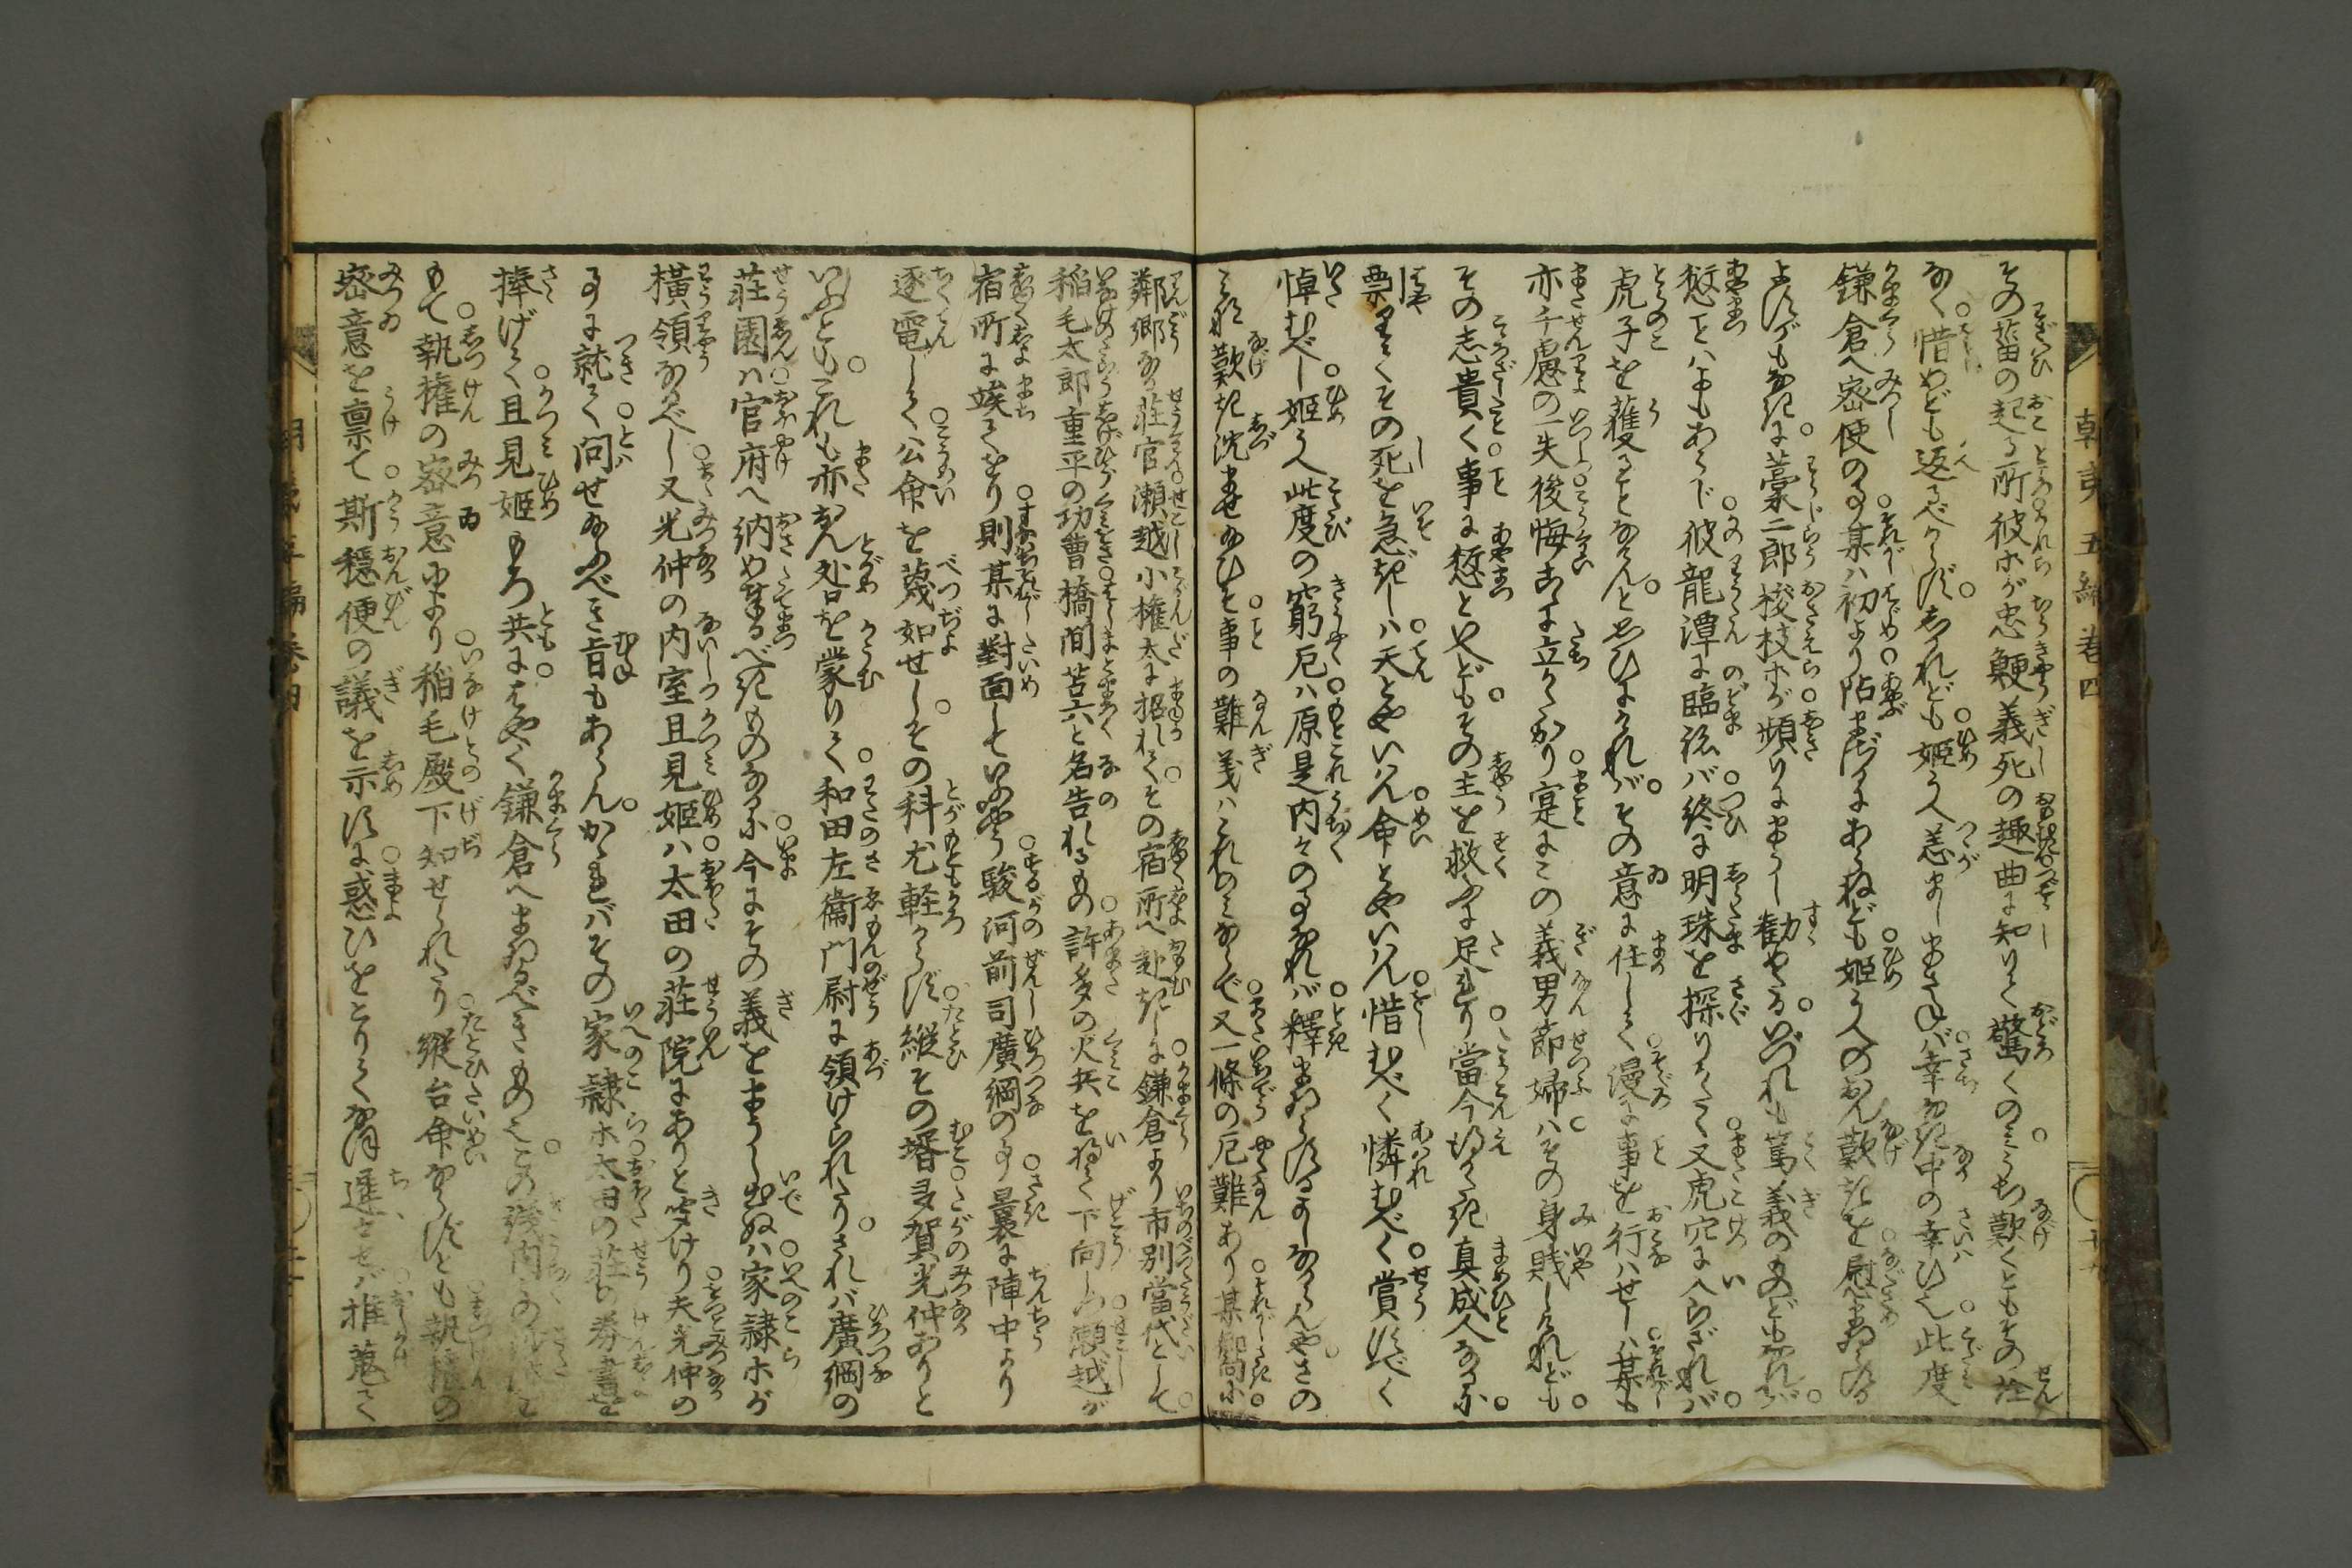 朝夷五編巻四
その菑の起る所彼ホが忠鯁義死の趣曲に知りて驚くのみうち歎くともその詮
なく惜めども返るべからず。しかれども姫うへ恙ましまさねバ幸なる中の幸ひ也此度
鎌倉へ密使の事某ハ初より陷まゐらするにあらねども姫うへのおん歎きを慰まゐらする
よしのなきに。藁二郎梭枝ホが頻りにまうし勧めたる。いづれも篤義のものどもなれバ。
愆をハよもあらじ彼龍潭に臨ねバ終に明珠を探りかたく又虎穴に入らざれバ。
虎子を獲ることなからんと思ひにけれバ。その意に任して漫に事を行ハせしハ某も
亦千慮の一失後悔こゝに立かたかり寔にこの義男節婦ハその身賤しけれども。
その志貴く事に愆といへども。その主を救ふに足れり當今得かたき真成人なるに。
票くその死を急ぎしハ天とやいハん命とやいハん惜むべく憐むべく賞すべく
悼むべし姫うへ此度の窮厄ハ原是内々の事なれバ釋まゐらするよしなからんやさの
み歎き沈ませ給ひそ事の難義ハこれのミならで又一條の厄難あり某嚮に。
鄰郷なる荘官瀬越小権太に招かれてその宿所へ赴きしに鎌倉より市別當代として。
稲毛太郎重平の功曹橋間苫六と名告れるもの許多の火兵を将て下向しつ瀬越が
宿所に竢てをり則某に對面していふやう駿河前司廣綱の事曩に陣中より
逐電して公命を蔑如せし。その科尤軽からず縦その壻多賀光仲ありと
いふとも。これも亦おん咎を蒙りて和田左衞門尉に領けられたり。されバ廣綱の
荘園ハ官府へ納め奉るべきものなるに今にその義をまうし出ぬハ家隷ホが
横領なるべし又光仲の内室且見姫ハ太田の荘院にありと聞けり夫光仲の
事に就て問せ給ふべき旨もあらん。かゝれバその家隷ホ太田の荘の券書を
捧げて且見姫もろ共に。はやく鎌倉へまゐるべきものこ。この
もて執権の密意により稲毛殿下知せられたり縦台命ならずとも執権の
密意を禀て斯穏便の議を示すに惑ひをとりて